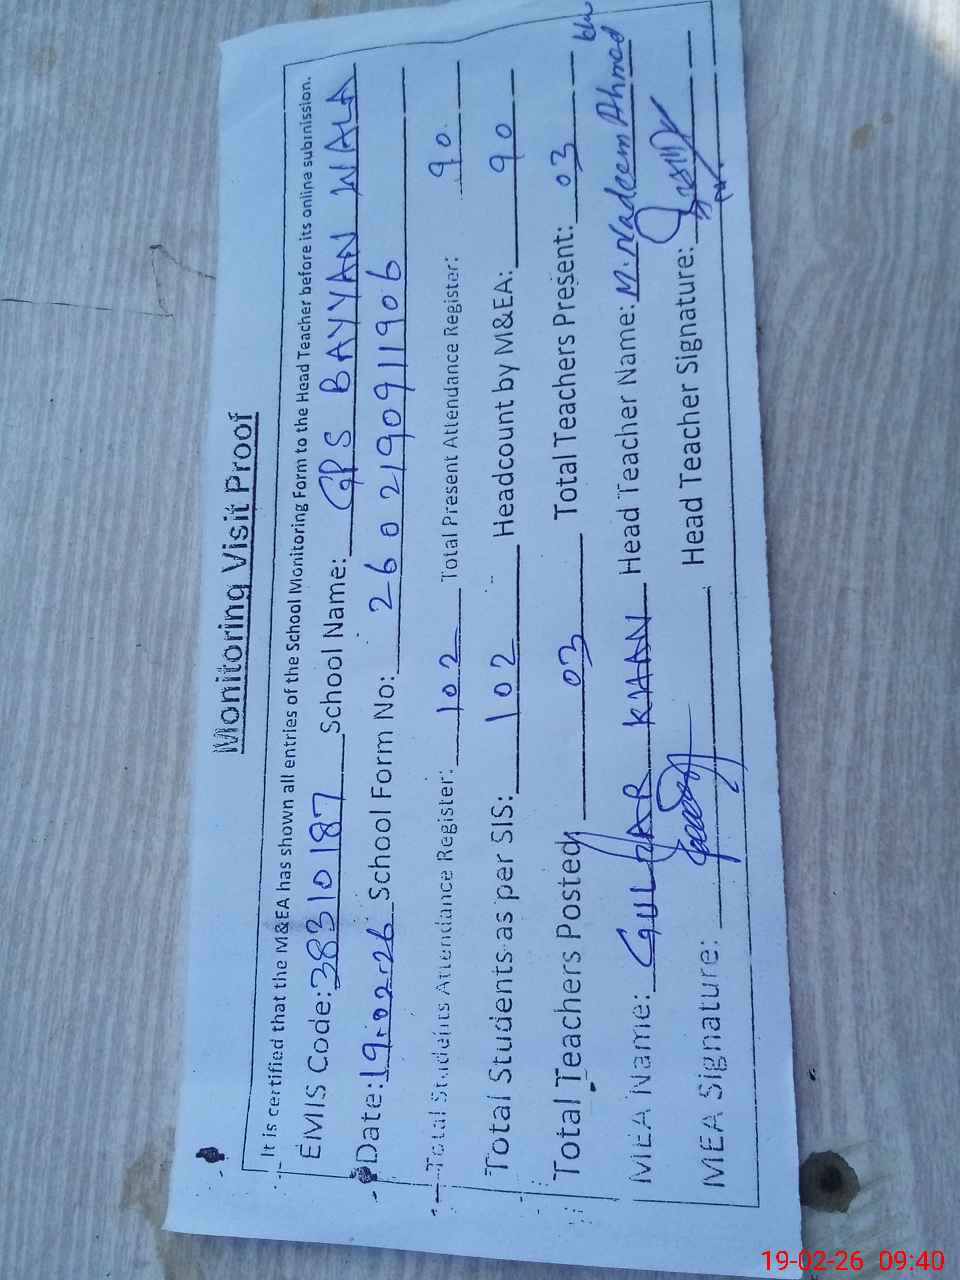 Monitoring Visit Proof
It is certified that the M&EA has shown all entries of the School Monitoring Form to the Head Teacher before its online submission.
EMIS Code: 38310187 School Name: GPS BAYYAN WALA
Date: 19-02-26 School Form No: 260219091 1906
Total Students Attendance Register: 102 Total Present Attendance Register: 90
Total Students as per SIS: 102 Headcount by M&EA: 90
Total Teachers Posted 03 Total Teachers Present: 03
MEA Name: GULZAR KHAN Head Teacher Name: M. Nadeem Ahmed
MEA Signature: Head Teacher Signature:
19-02-26 09:40